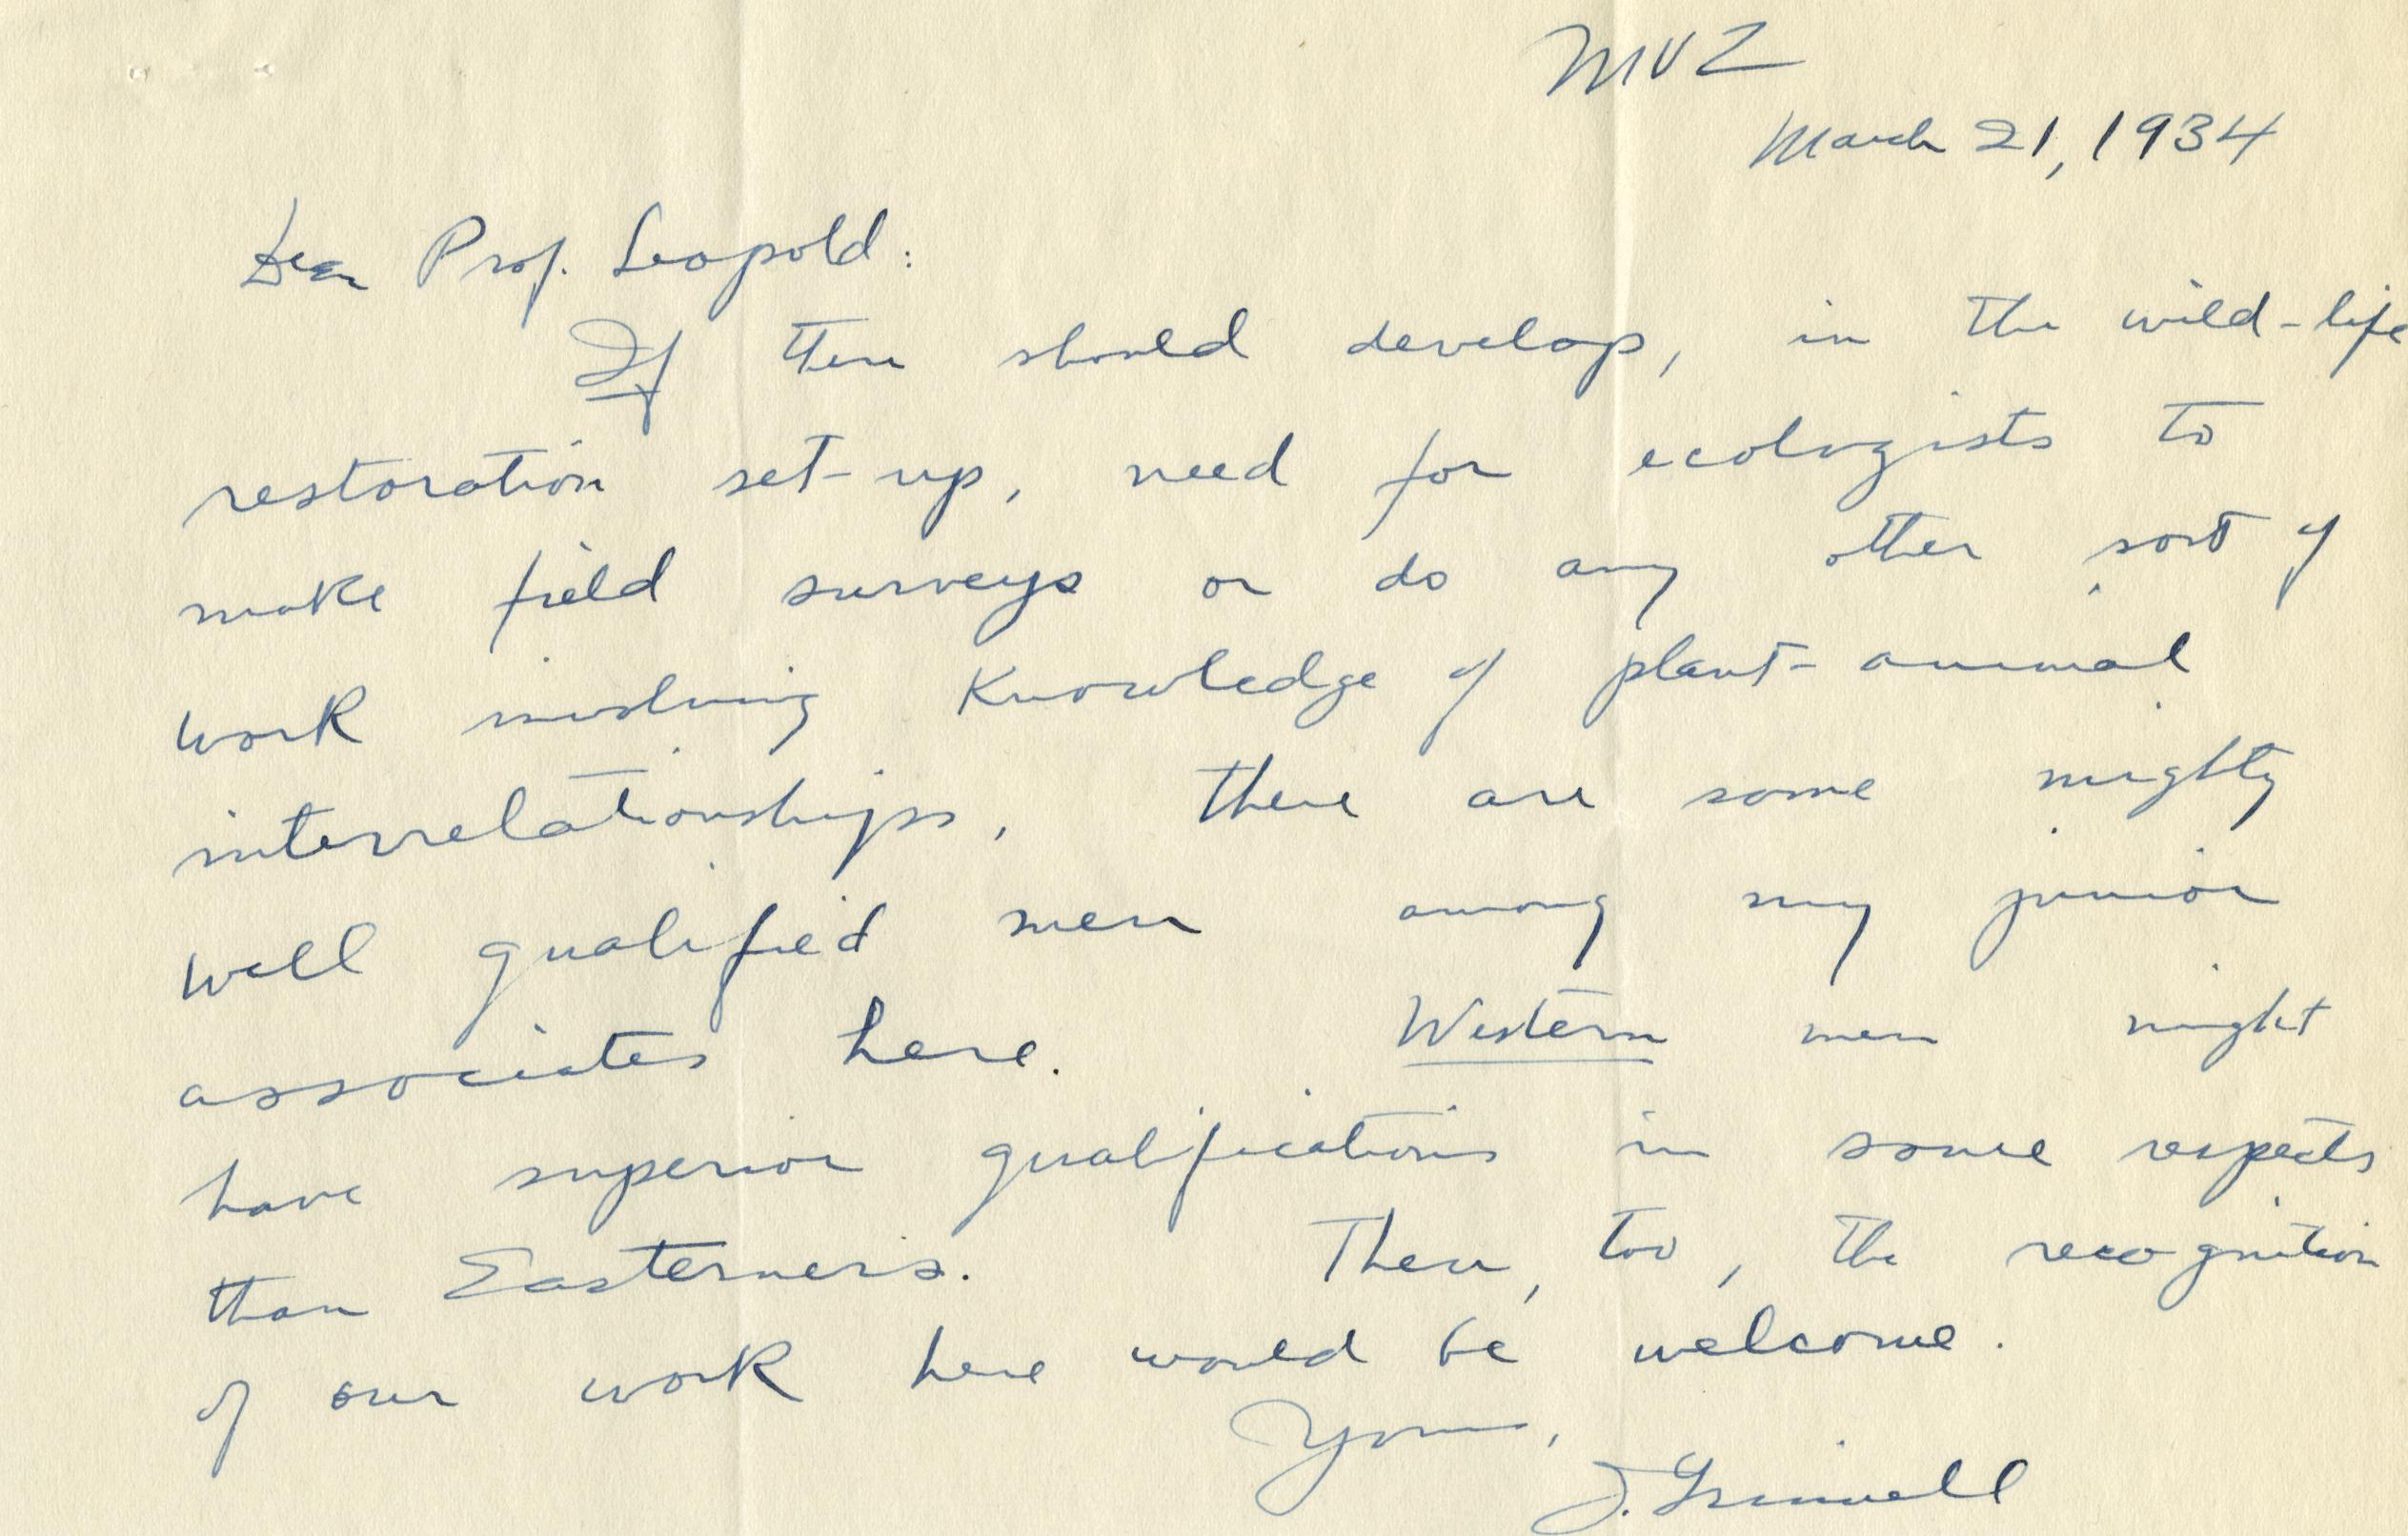 MVZ
March 21, 1934
Dear Prof. Leopold:
If there should develop, in the wild-life
restoration set-up, need for ecologists to
make field surveys or do any other sort of
work involving knowledge of plant-animal
interrelationships, there are some mighty
well qualified men among my junior
associates here. Western men might
have superior qualifications in some respects
than Easterners. Then, too, the recognition
of our work here would be welcome.
Yours,
J. Grinnell